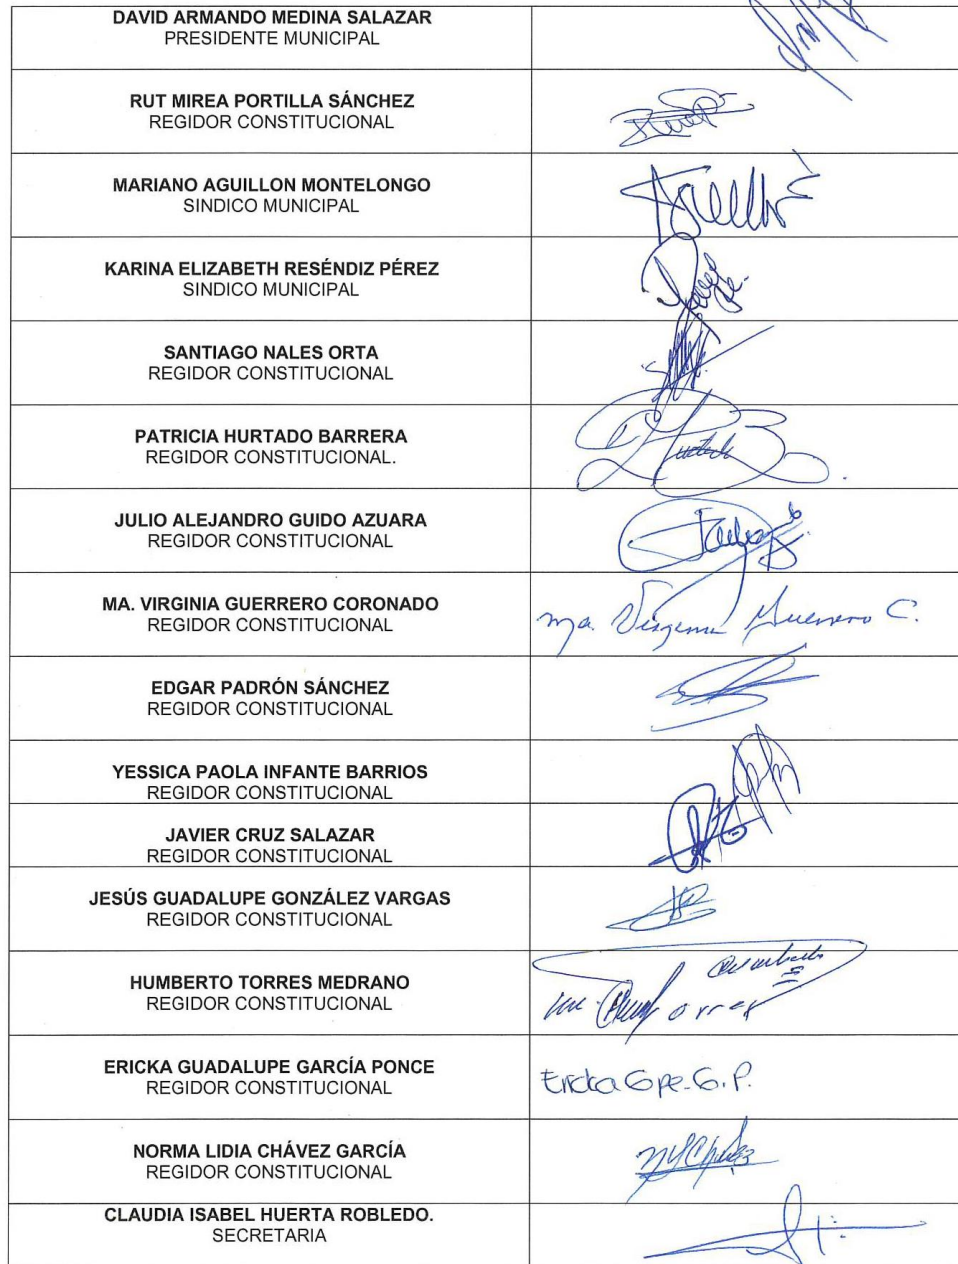 DAVID ARMANDO MEDINA SALAZAR
PRESIDENTE MUNICIPAL
RUT MIREA PORTILLA SÁNCHEZ
REGIDOR CONSTITUCIONAL
MARIANO AGUILLON MONTELONGO
SINDICO MUNICIPAL
KARINA ELIZABETH RESÉNDIZ PÉREZ
SINDICO MUNICIPAL
SANTIAGO NALES ORTA
REGIDOR CONSTITUCIONAL
PATRICIA HURTADO BARRERA
REGIDOR CONSTITUCIONAL.
JULIO ALEJANDRO GUIDO AZUARA
REGIDOR CONSTITUCIONAL
MA. VIRGINIA GUERRERO CORONADO
REGIDOR CONSTITUCIONAL
Ma. Virginia Guerrero C.
EDGAR PADRÓN SÁNCHEZ
REGIDOR CONSTITUCIONAL
YESSICA PAOLA INFANTE BARRIOS
REGIDOR CONSTITUCIONAL
JAVIER CRUZ SALAZAR
REGIDOR CONSTITUCIONAL
JESÚS GUADALUPE GONZÁLEZ VARGAS
REGIDOR CONSTITUCIONAL
HUMBERTO TORRES MEDRANO
REGIDOR CONSTITUCIONAL
ERICKA GUADALUPE GARCÍA PONCE
REGIDOR CONSTITUCIONAL
Ericka Gpe. G. P.
NORMA LIDIA CHÁVEZ GARCÍA
REGIDOR CONSTITUCIONAL
CLAUDIA ISABEL HUERTA ROBLEDO.
SECRETARIA